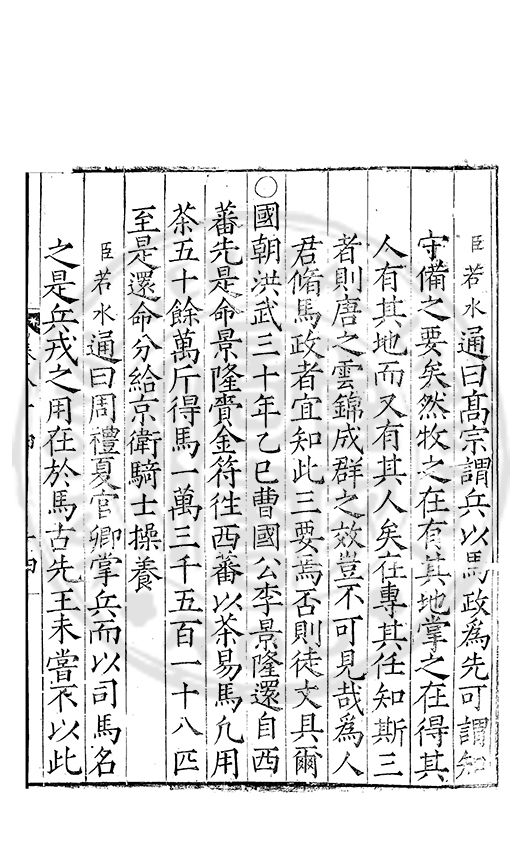 臣若水通曰高宗謂兵以馬政爲先可謂知
守備之要矣然牧之在有其地掌之在得其
人有其地而又有其人矣在專其任知斯三
者則唐之雲錦成群之效豈不可見哉爲人
君脩馬政者宜知此三要焉否則徒文具爾
○國朝洪武三十年乙巳曹國公李景隆還自西
蕃先是命景隆賫金符徃西蕃以茶易馬凢用
茶五十餘萬斤得馬一萬三千五百一十八匹
至是還命分給京衛騎士操養
臣若水通曰周禮夏官卿掌兵而以司馬名
之是兵戎之用在於馬古先王未嘗不以此